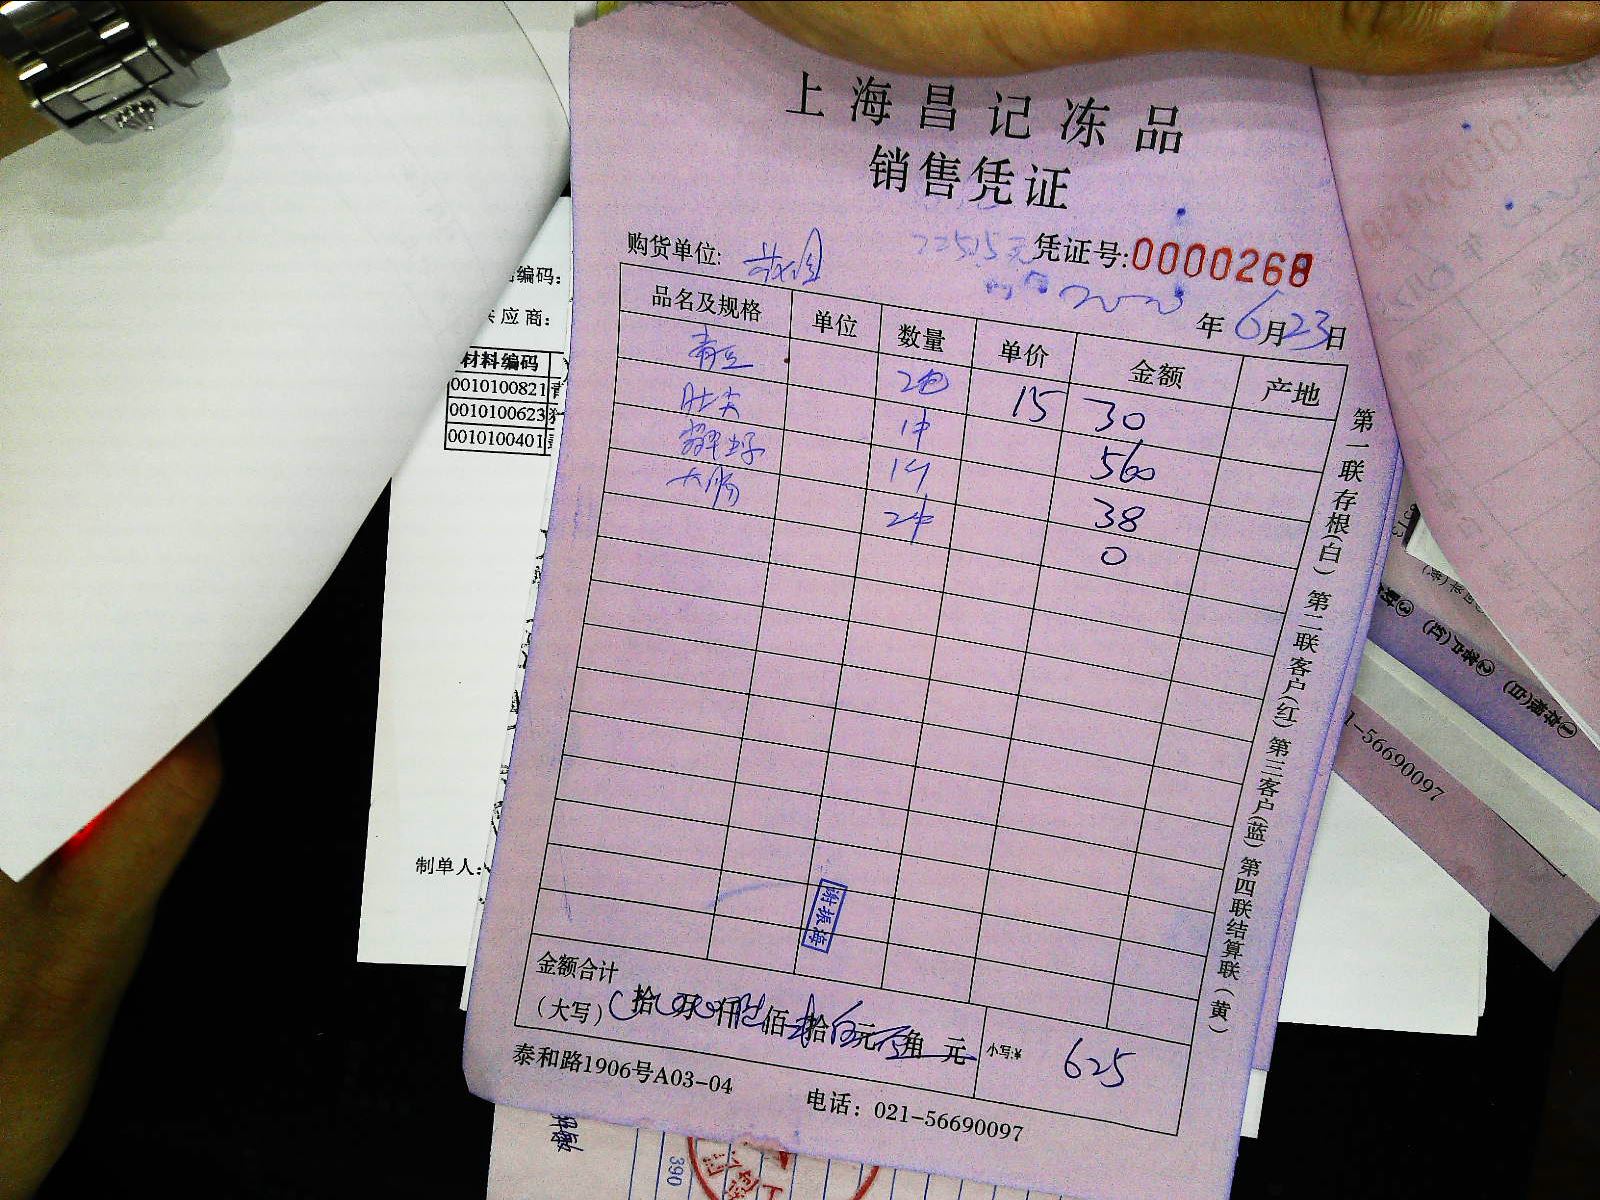 上海昌记冻品
销售凭证
购货单位:
凭证号:0000268
年6月23日
品名及规格 单位 数量 单价 金额 产地
青豆 2包 15 30
肚尖 1件 560
1件 38
大肠 2件 0
金额合计
(大写) 拾 万 仟 佰 拾 元 角 元 小写:¥ 625
泰和路1906号A03-04 电话：021-56690097
第一联存根(白) 第二联客户(红) 第三客户(蓝) 第四联结算联(黄)
谢振海
编码:
供应商:
材料编码
0010100821
0010100623
0010100401
制单人:
1-56690097
390